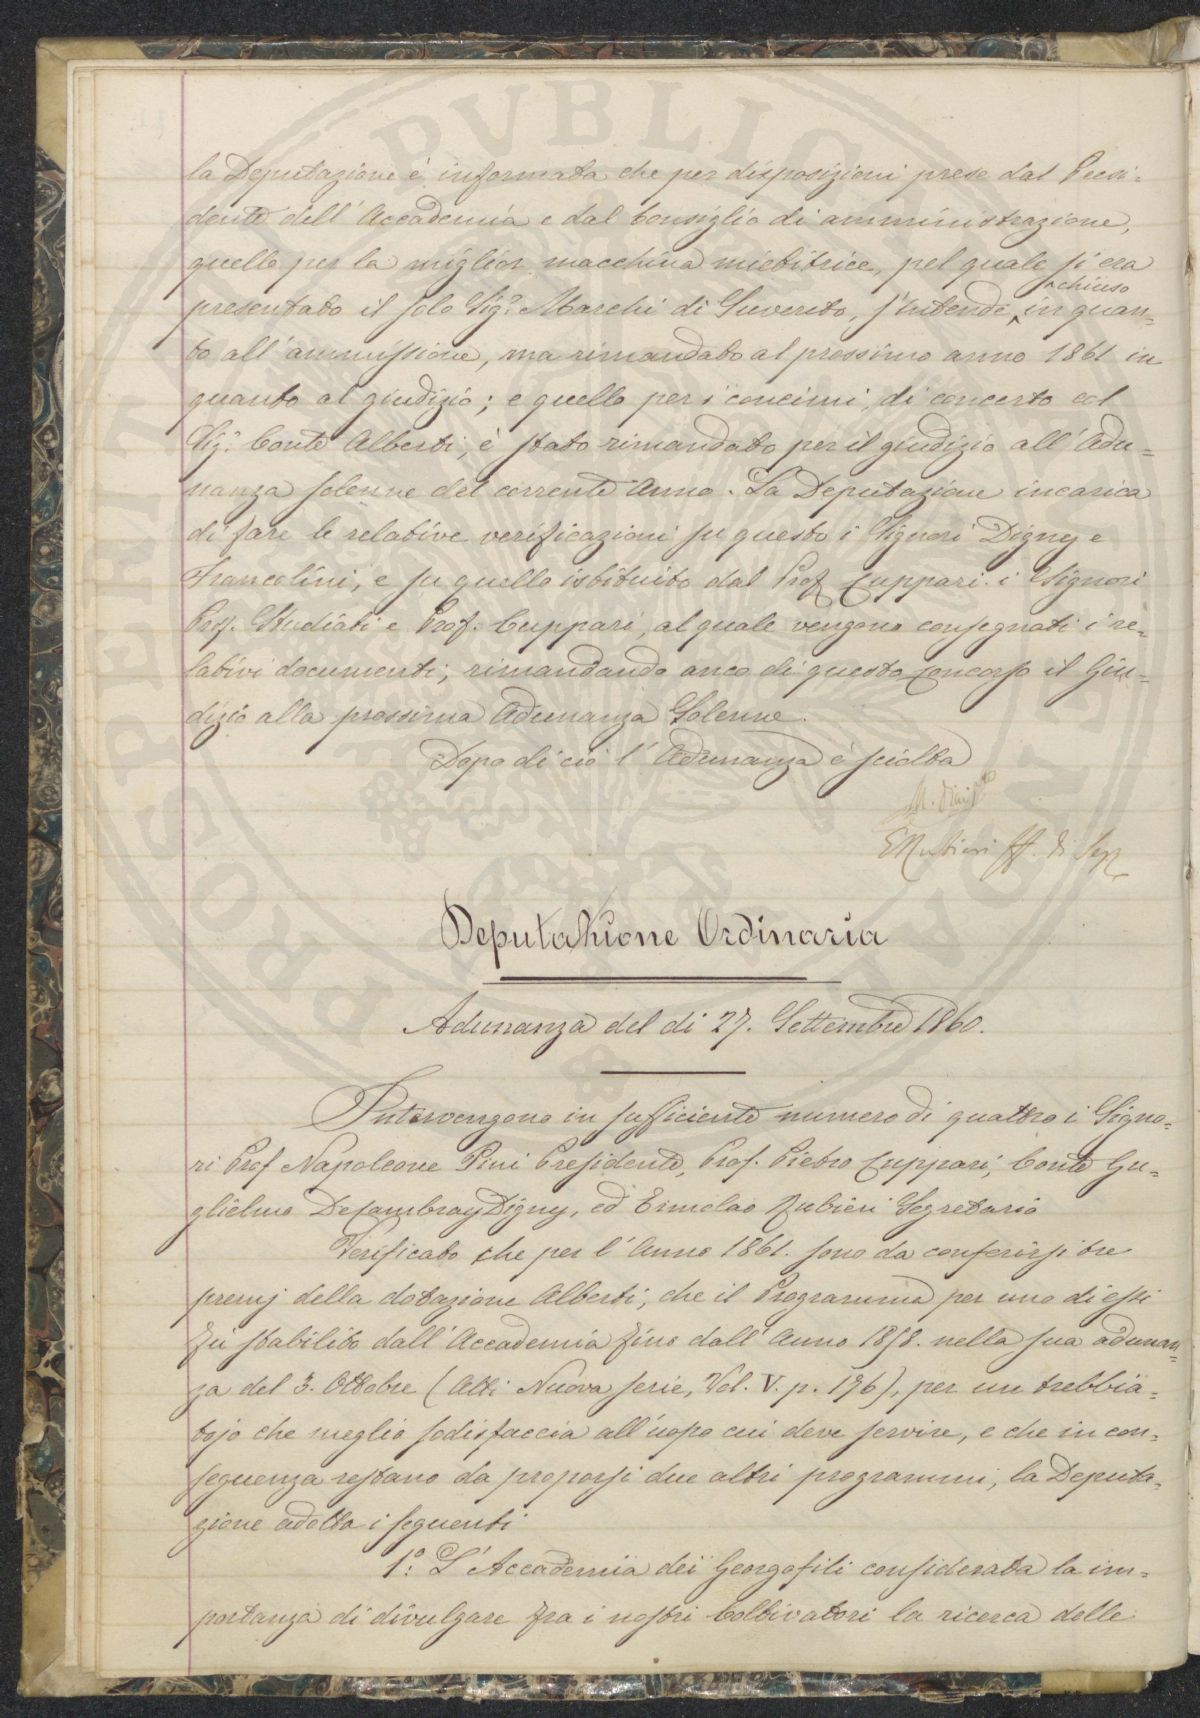 la Deputazione è informata che per disposizioni prese dal Presi-
dente dell'Accademia e dal Consiglio di amministrazione,
quello per la miglior macchina mietitrice, pel quale si era
presentato il solo Sigr. Marchi di Suvereto, s'intende chiuso in quan-
to all'ammissione, ma rimandato al prossimo anno 1861 in
quanto al giudizio; e quello per i concimi, di concerto col
Sigr. Conte Alberti, è stato rimandato per il giudizio all'Adu-
nanza solenne del corrente Anno. La Deputazione incarica
di fare le relative verificazioni su questo i Signori Digny e
Francolini, e su quello istituito dal Prof. Cuppari i Signori
Prof. Studiati e Prof. Cuppari, al quale vengono consegnati i re-
lativi documenti; rimandando anco di questo concorso il Giu-
dizio alla prossima Adunanza Solenne.
Dopo di ciò l'Adunanza è sciolta
E Rubieri ff. di Segr
Deputazione Ordinaria
Adunanza del dì 27. Settembre 1860.
Intervengono in sufficiente numero di quattro i Signo-
ri Prof Napoleone Pini Presidente, Prof. Pietro Cuppari, Conte Gu-
glielmo De Cambray Digny, ed Ermolao Rubieri Segretario
Verificato che per l'Anno 1861. sono da conferirsi tre
premj della dotazione Alberti, che il Programma per uno di essi
fù stabilito dall'Accademia fino dall'Anno 1858. nella sua adunan-
za del 3. Ottobre (Atti Nuova serie, Vol. V. p. 196), per un trebbia-
tojo che meglio sodisfaccia all'uopo cui deve servire, e che in con-
seguenza restano da proporsi due altri programmi, la Deputa-
zione adotta i seguenti
1.° L'Accademia dei Georgofili considerata la im-
portanza di divulgare fra i nostri Coltivatori la ricerca delle
PUBLICAE
PROSPERITATI